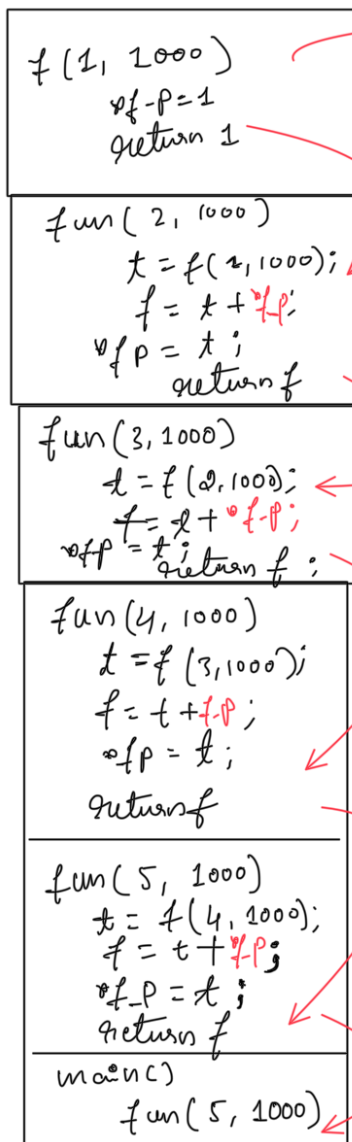 f(1, 1000)
*f-p=1
return 1
fun(2, 1000)
t = f(1,1000);
f = t + *f-p;
*fp = t;
return f
fun(3,1000)
t = f(2,1000);
f = t + *f-p;
*fp = t;
return f;
fun(4,1000)
t = f(3,1000);
f = t + f-p;
*fp = t;
return f
fun(5, 1000)
t = f(4,1000);
f = t + *f-p;
*f-p = t;
return f
main()
fun(5, 1000)